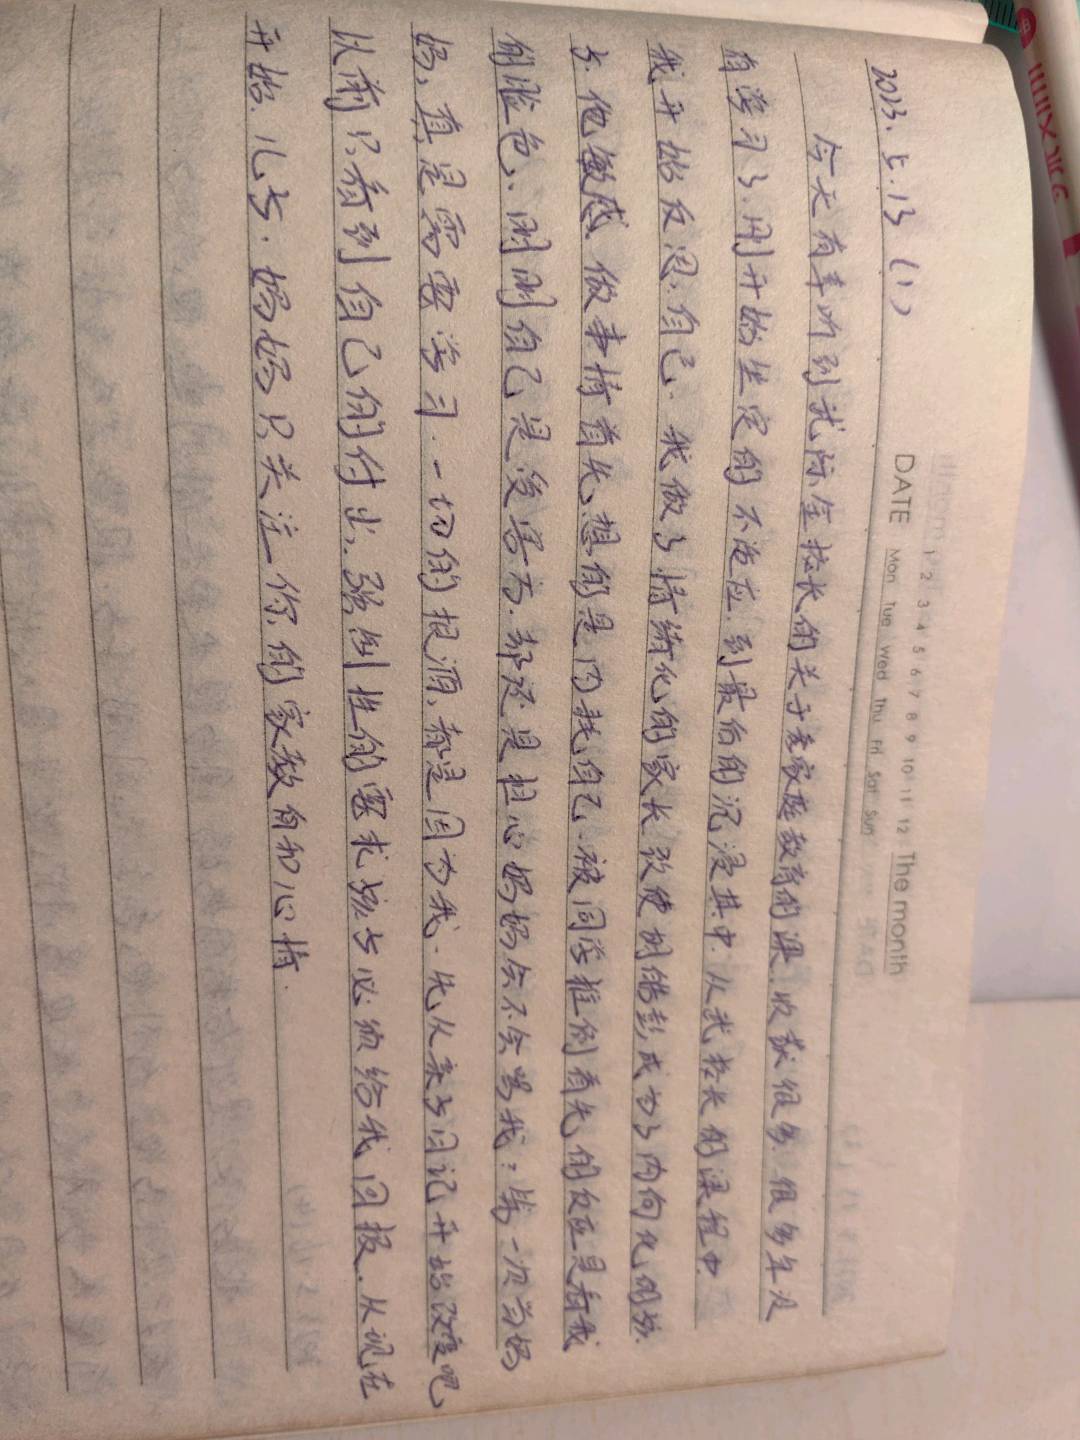 1 2 3 4 5 6 7 8 9 10 11 12 The month
DATE Mon Tue Wed Thu Fri Sat Sun
2023.5.13 (1)
今天有幸听到沈际金校长的关于亲家庭教育的课.收获很多.很多年没
有学习了.刚开始坐定的不适应.到最后的沉浸其中.从我校长的课程中.
我开始反思自己.我做了情绪化的家长.致使胡锴彭成为了内向化的孩
子.他敏感.做事情首先想的是内耗自己.被同学推倒首先的反应是看我
的脸色.刚刚自己是受害方.却还是担心妈妈会不会骂我?第一次当妈
妈,真是需要学习.一切的根源,都是因为我.先从亲子日记开始改变吧,
以前只看到自己的付出.强制性的要求孩子必须给我回报.从现在
开始.儿子.妈妈只关注你的家教育和心情.